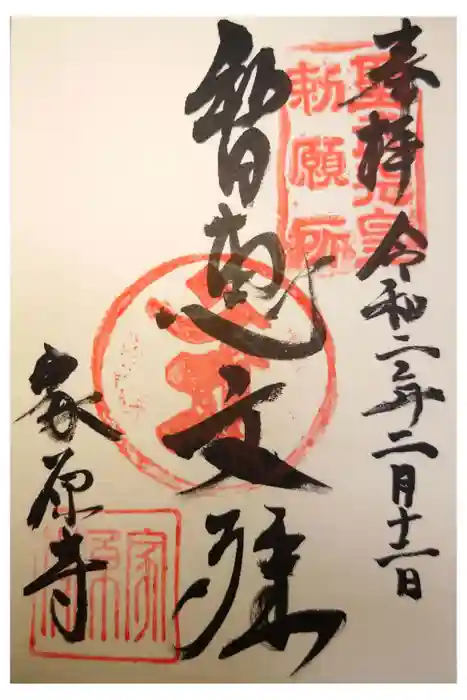 奉拝 令和二年二月十一日
聖武天皇
勅願所
智恵文殊
家原寺
家原寺